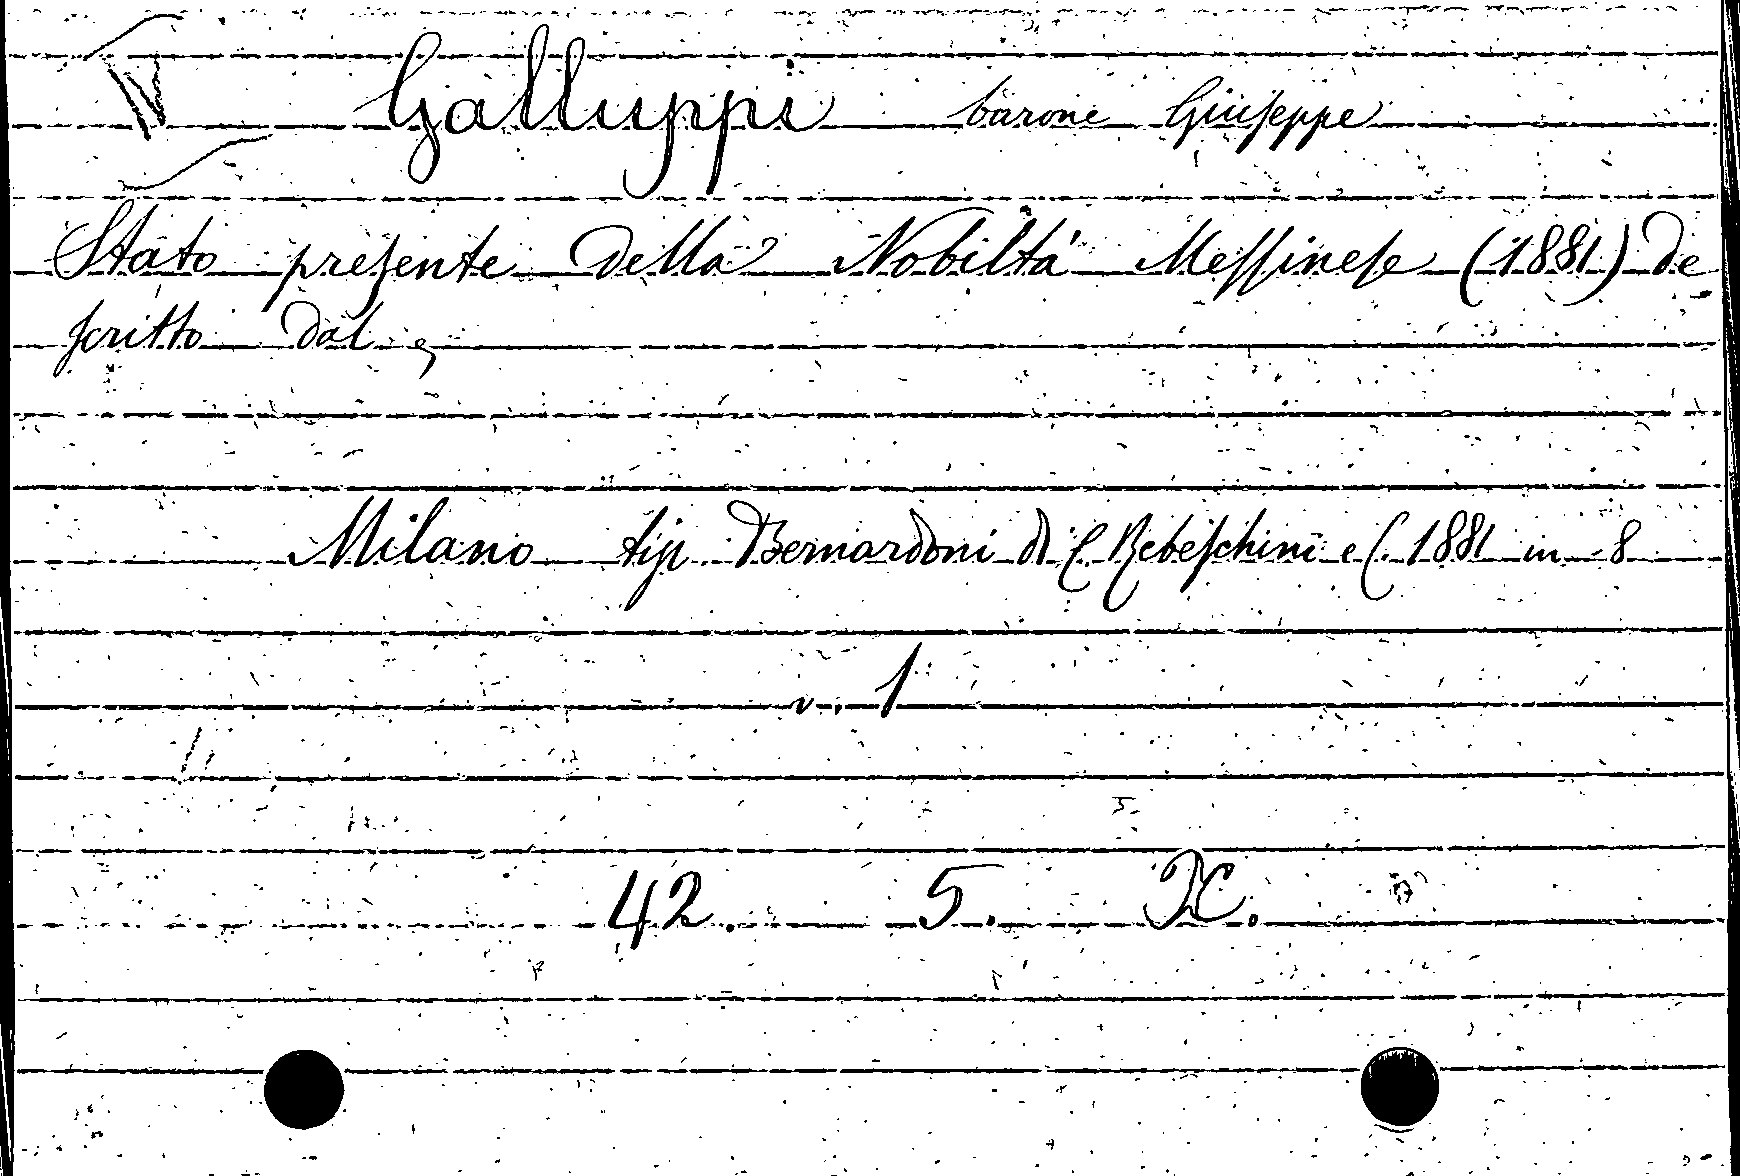 Galluppi barone Giuseppe
Stato presente della Nobiltá Messinese (1881) de
scritto dal,
Milano tip. Bernardoni di C. Rebeschini e C. 1881 in 8
v. 1
42. 5. X.